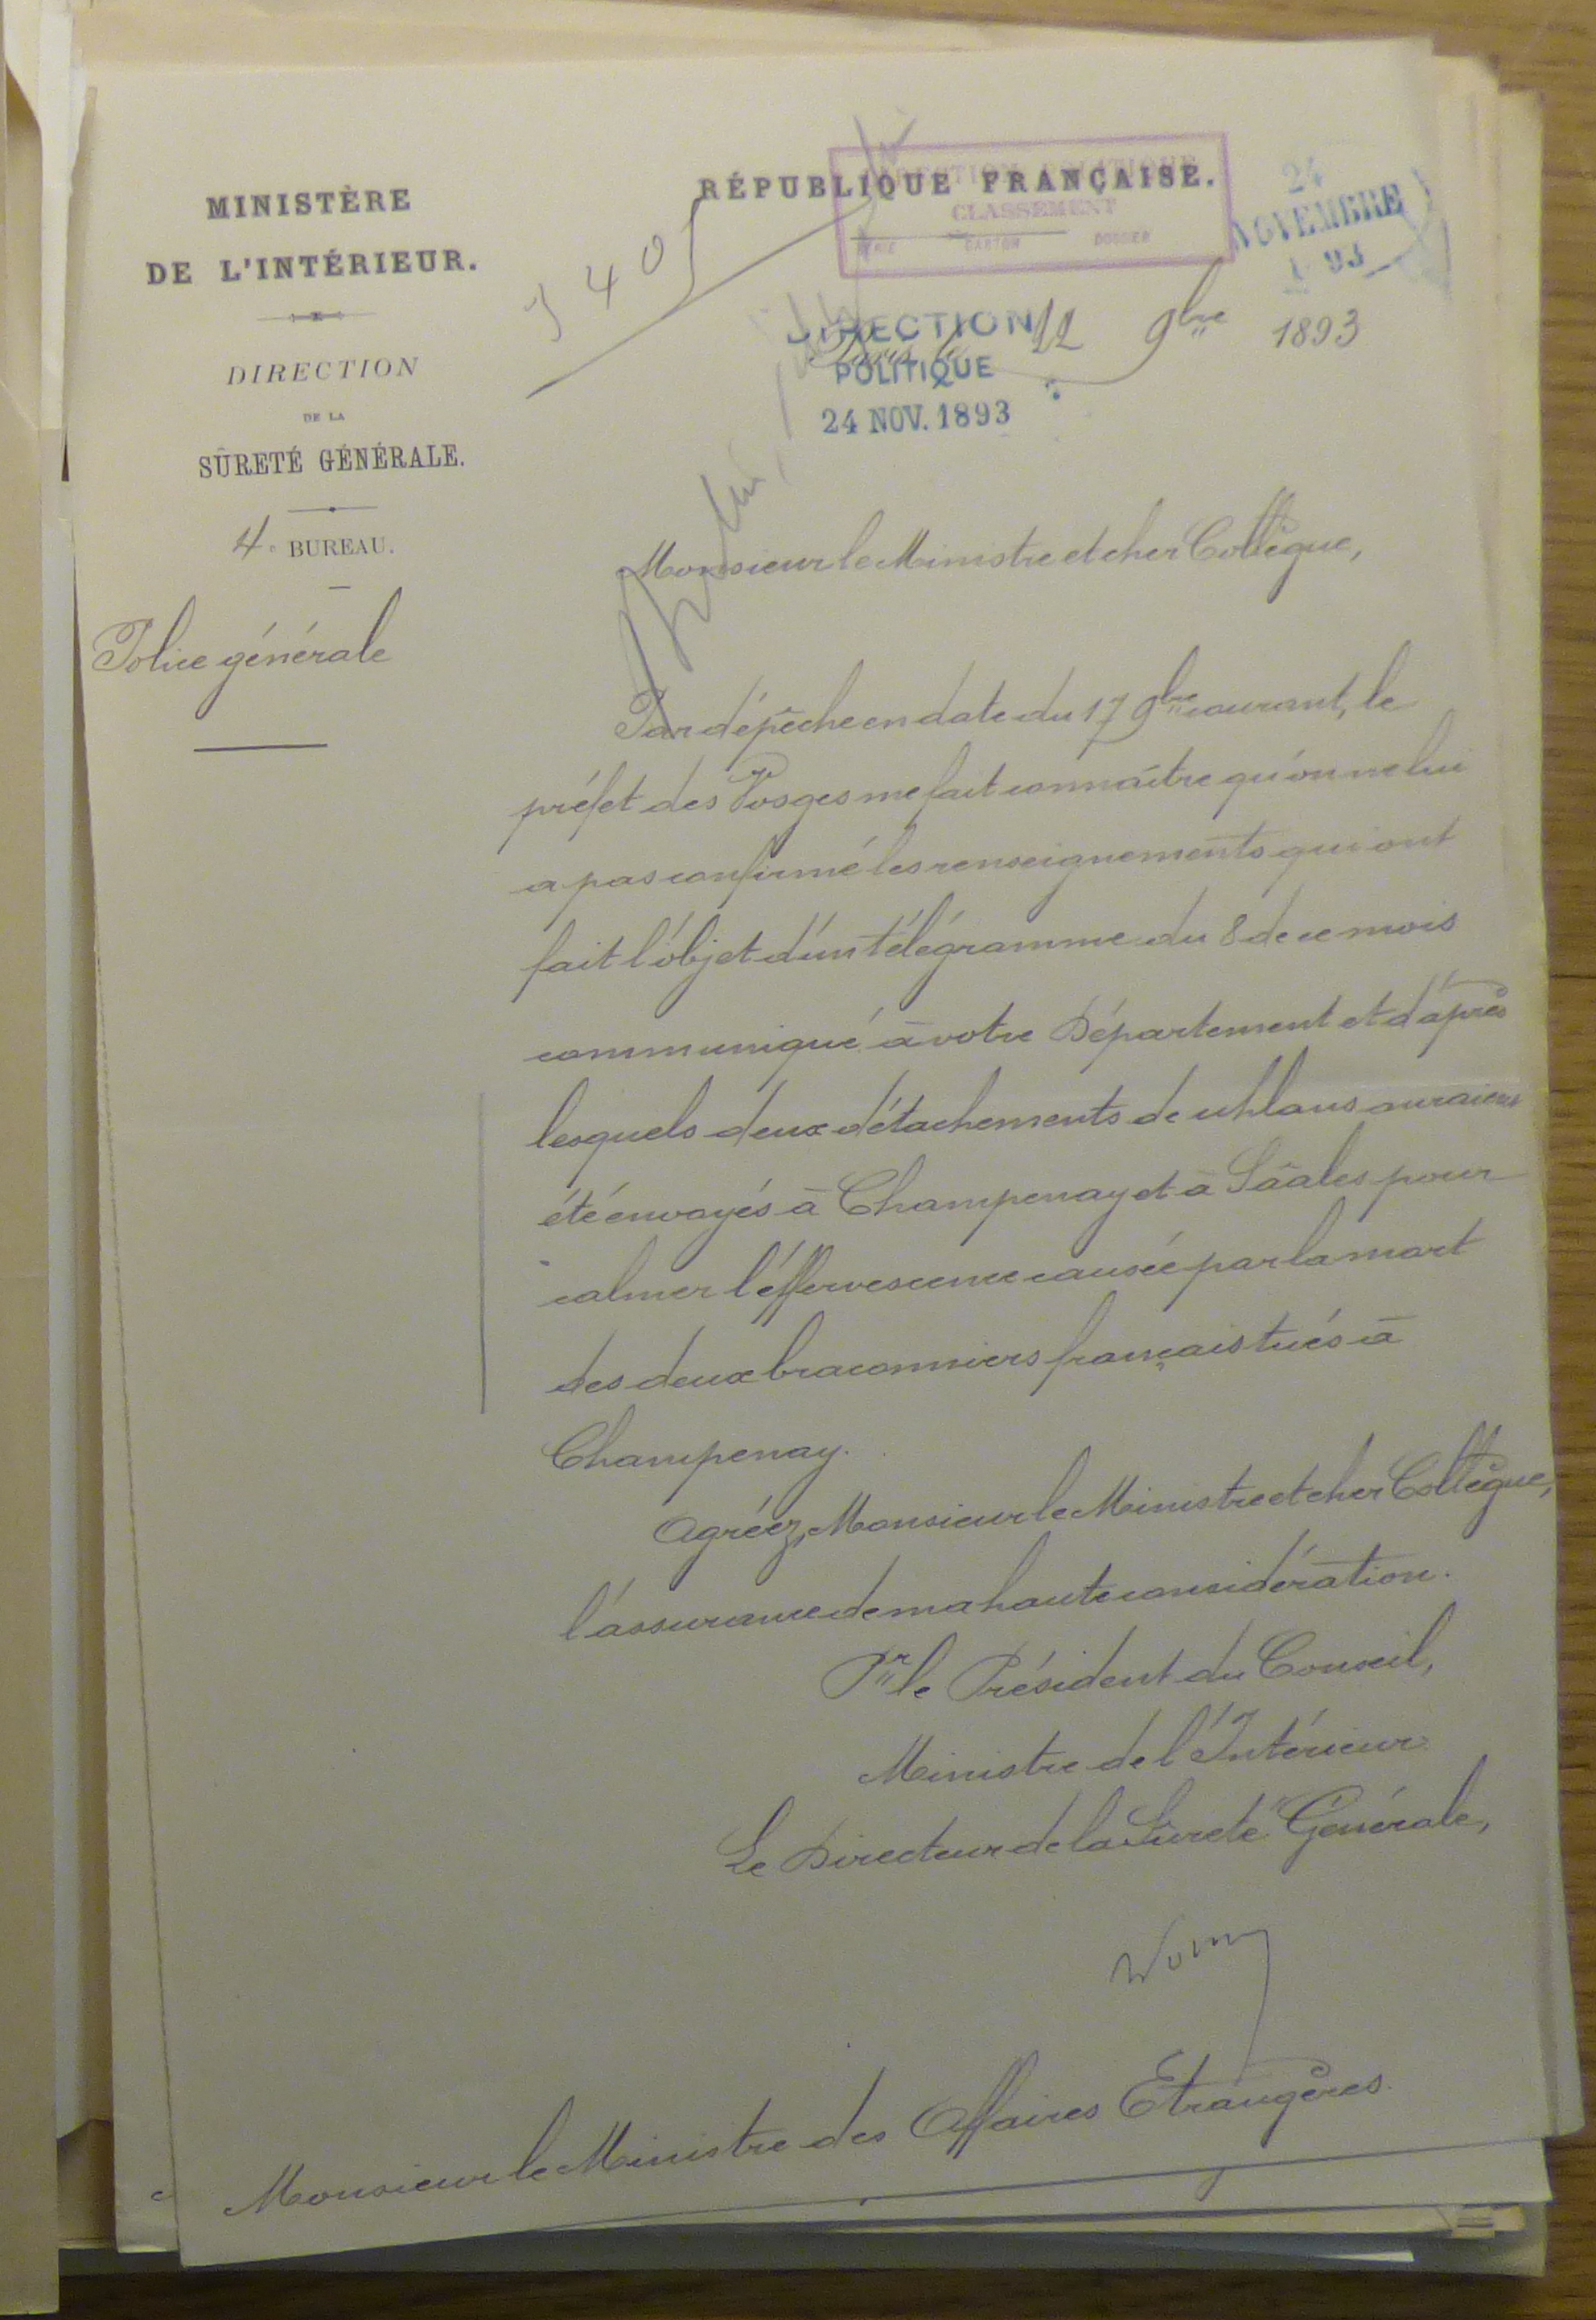 MINISTÈRE
DE L'INTÉRIEUR.
DIRECTION
DE LA
SÛRETÉ GÉNÉRALE.
4e BUREAU.
Police générale
RÉPUBLIQUE FRANÇAISE.
DIRECTION POLITIQUE
CLASSEMENT
SÉRIE CARTON DOSSIER
24
NOVEMBRE
93
Paris, le 22 9bre 1893
DIRECTION
POLITIQUE
24 NOV. 1893
Monsieur le Ministre et cher Collègue,
Par dépêche en date du 17 9bre courant, le
préfet des Vosges me fait connaître qu'on ne lui
a pas confirmé les renseignements qui ont
fait l'objet d'un télégramme du 8 de ce mois
communiqué à votre Département et d'après
lesquels deux détachements de uhlans auraient
été envoyés à Champenay et à Sâales pour
calmer l'effervescence causée par la mort
des deux braconniers français tués à
Champenay.
Agréez, Monsieur le Ministre et cher Collègue,
l'assurance de ma haute considération.
Pr le Président du Conseil,
Ministre de l'Intérieur
Le Directeur de la Sûreté Générale,
Monsieur le Ministre des Affaires Etrangères.